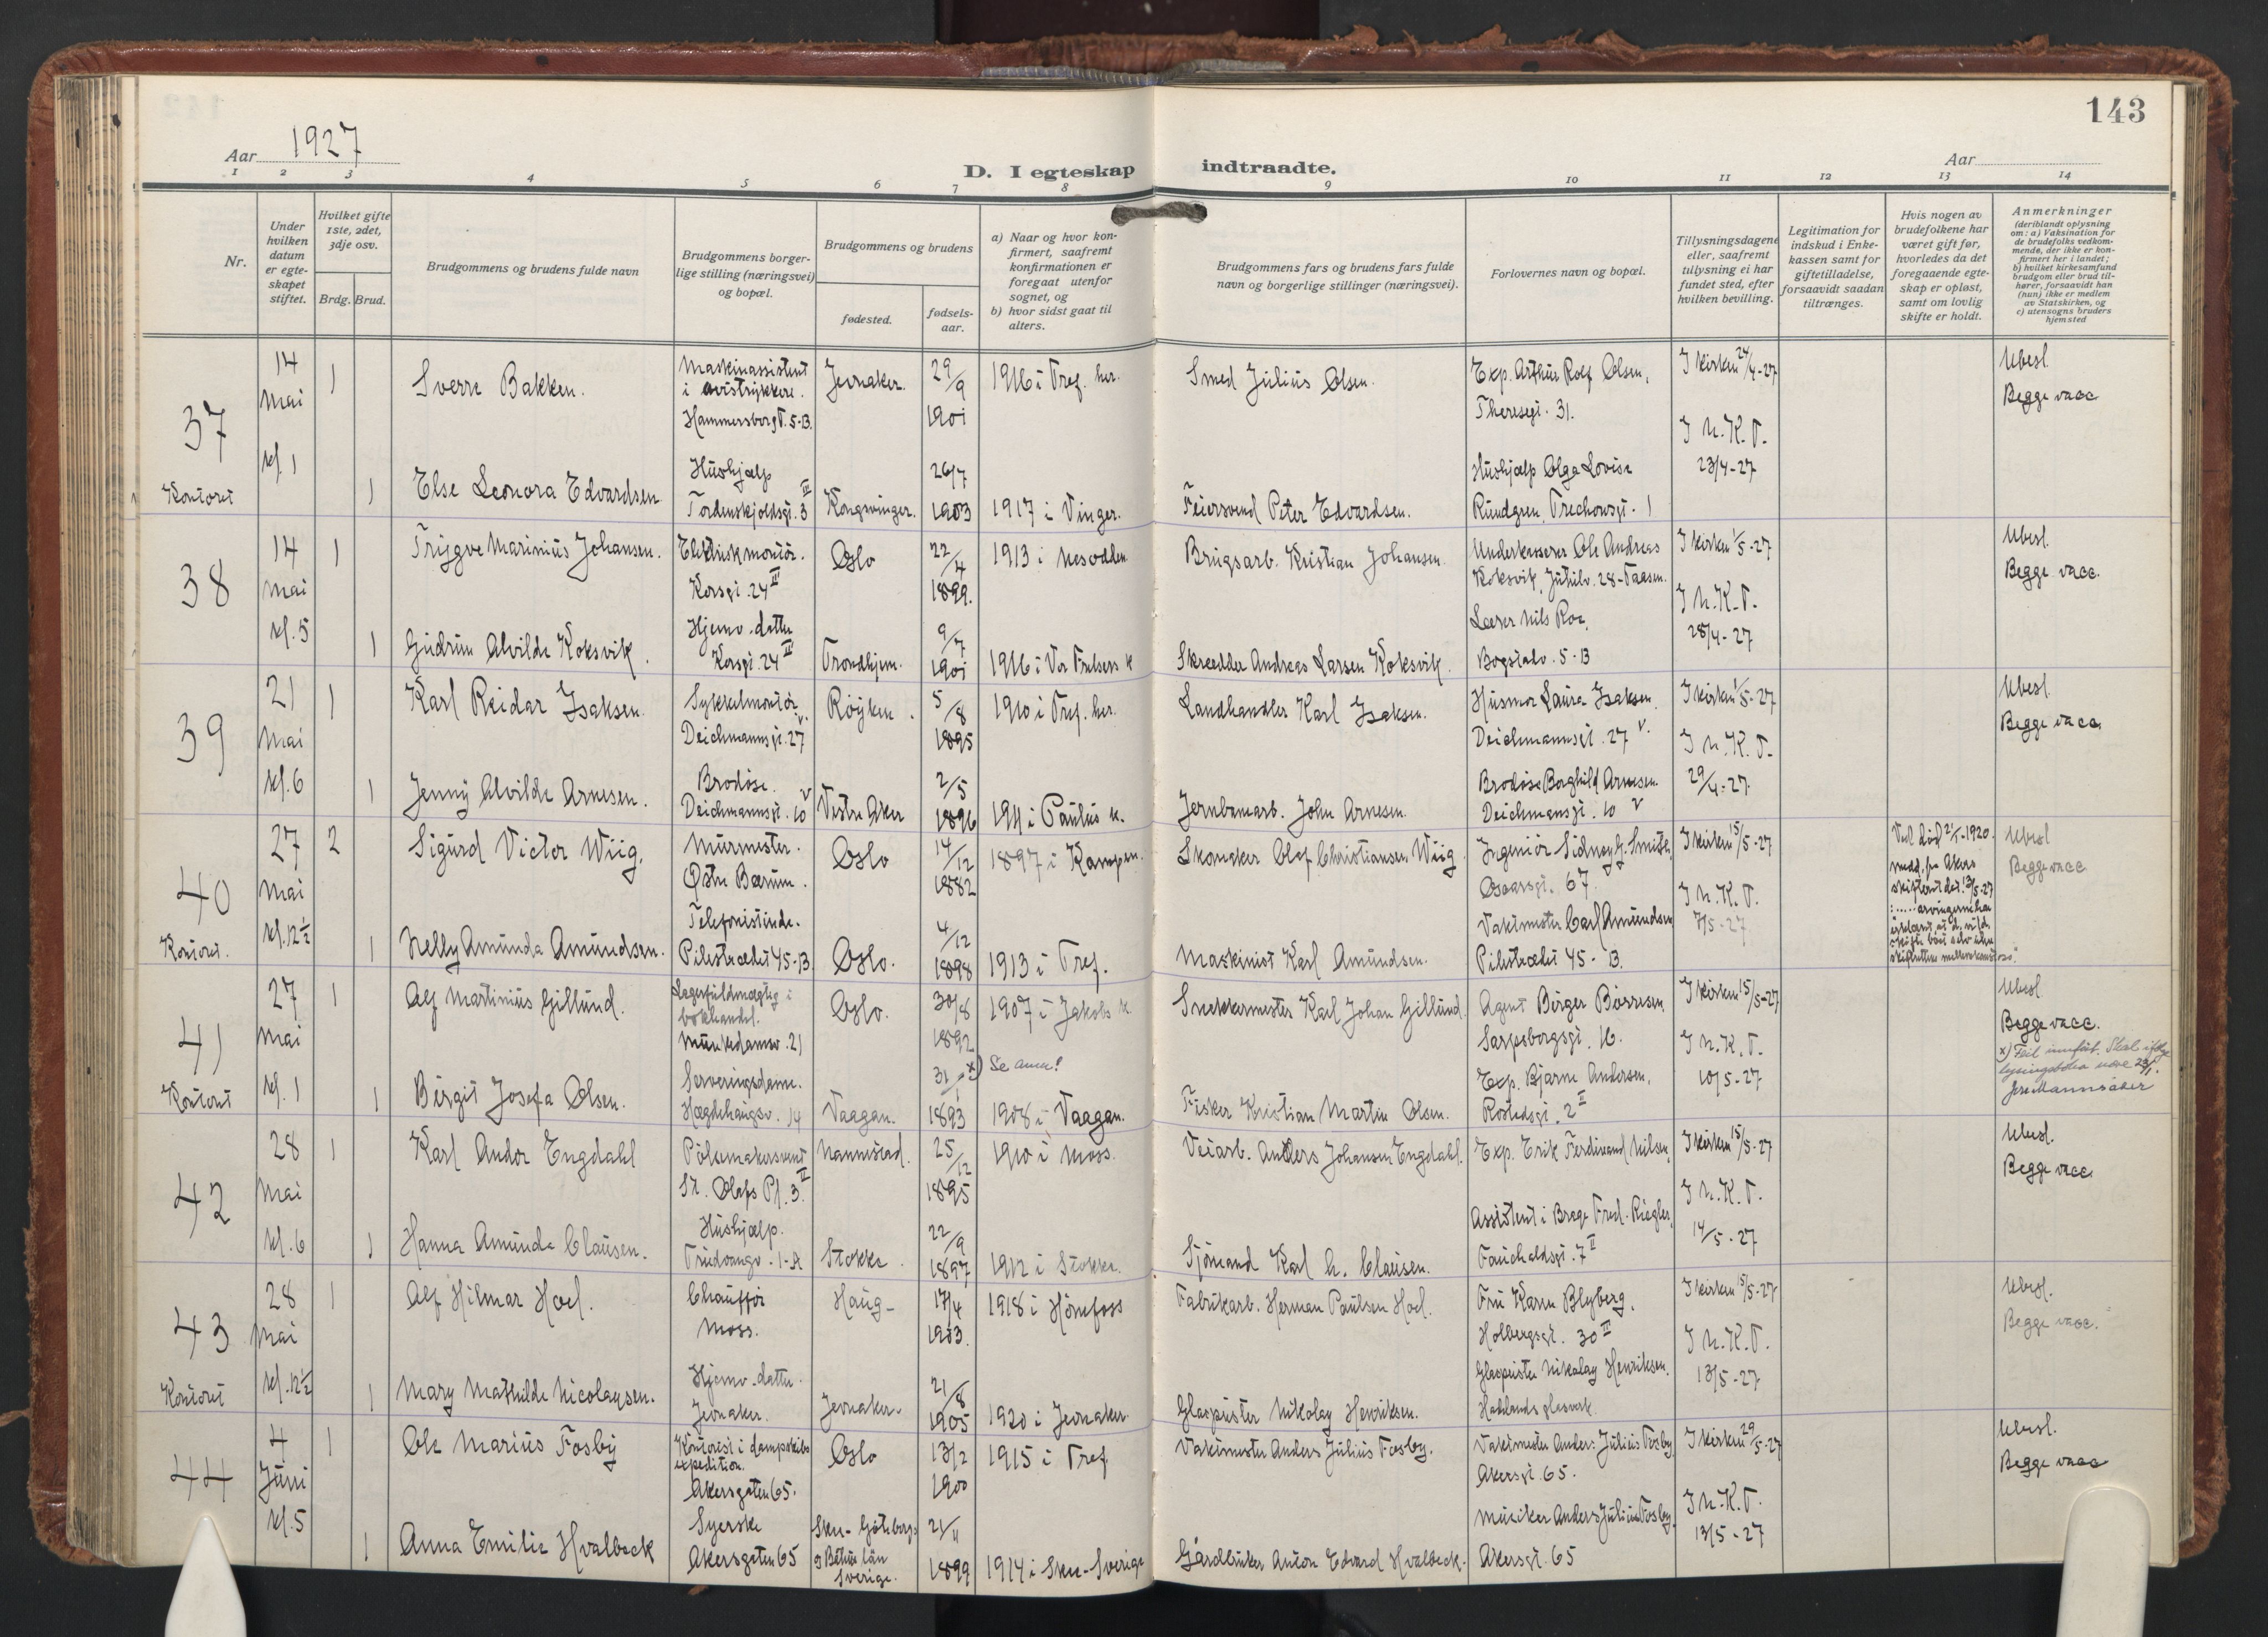 143
Aar 1927
D. I egteskap indtraadte.
Aar
1 2 3 4 5 6 7 8 9 10 11 12 13 14
Nr.
Under hvilken datum er egteskapet stiftet.
Hvilket gifte 1ste, 2det, 3dje osv.
Brdg. Brud.
Brudgommens og brudens fulde navn
Brudgommens borgerlige stilling (næringsvei) og bopæl.
Brudgommens og brudens
fødested.
fødselsaar.
a) Naar og hvor konfirmert, saafremt konfirmationen er foregaat utenfor sognet, og
b) hvor sidst gaat til alters.
Brudgommens fars og brudens fars fulde navn og borgerlige stillinger (næringsvei).
Forlovernes navn og bopæl.
Tillysningsdagene eller, saafremt tillysning ei har fundet sted, efter hvilken bevilling.
Legitimation for indskud i Enkekassen samt for giftetilladelse, forsaavidt saadan tiltrænges.
Hvis nogen av brudefolkene har været gift før, hvorledes da det foregaaende egteskap er opløst, samt om lovlig skifte er holdt.
Anmerkninger
(deriblandt oplysning om: a) Vaksination for de brudefolks vedkommende, der ikke er konfirmert her i landet; b) hvilket kirkesamfund brudgom eller brud tilhører, forsaavidt han (hun) ikke er medlem av Statskirken, og c) utensogns bruders hjemsted
37
14 Mai kl. 1
Kontoret
1 Sverre Bakken.
Maskinassistent i avistrykkeri. Hammersborg T. 5-B.
Jevnaker.
29/9 1901
1916 i Tref. her.
Smed Julius Olsen.
Exp. Arthur Rolf Olsen, Theresegt. 31.
I kirken 24/4-27
I N.K.T. 23/4-27
Ubesl. Begge vacc.
1 Else Leonora Edvardsen
Hushjælp Tordenskjoldsgt. 3 III
Kongsvinger.
26/7 1903
1917 i Vinger.
Feiersvend Peter Edvardsen.
Hushjælp Olga Lovise Rundgren, Treschowsgt. 1
38
14 Mai kl. 5
1 Trygve Marinius Johansen.
Elektriskmontör. Korsgt. 24 III
Oslo
22/4 1899.
1913 i Nesodden
Brugsarb. Kristian Johansen.
Underkasserer Ole Andreas Koksvik, Jutulv. 28-Taasen.
I kirken 1/5-27
I N.K.T. 28/4-27
Ubesl. Begge vacc.
1 Gudrun Alvilde Koksvik.
Hjemv. datter Korsgt. 24 II
Trondhjem.
9/7 1901
1916 i Vor Frelsers k
Skredder Andreas Larsen Koksvik.
Lærer Nils Roe, Bogstadv. 5-B
39
21 Mai kl. 6
1 Karl Reidar Isaksen.
Sykkelmontör Deichmannsgt. 27 V.
Röyken.
5/8 1895
1910 i Tref. her.
Landhandler Karl Isaksen.
Husmor Laura Isaksen, Deichmannsgt. 27 V.
I kirken 1/5-27
I N.K.T. 29/4-27
Ubesl. Begge vacc.
1 Jenny Alvilde Arnesen.
Brodöse. Deichmannsgt. 10 V
Vestre Aker
2/5 1896
1911 i Paulus k.
Jernbanearb. John Arnesen.
Brodöse Borghild Arnesen. Deichmansgt. 10 V
40
27 Mai kl. 12½
Kontoret.
2 Sigurd Victor Wiig.
Murmester. Østre Bærum.
Oslo
14/12 1882
1897 i Kampen.
Skomaker Olaf Christiansen Wiig.
Ingeniör Sidney G. Smith, Oscarsgt. 67.
I kirken 15/5-27
I N.K.T. 7/5-27
Ubesl Begge vacc
1 Nelly Amunda Amundsen.
Telefonistinde. Pilestrædet 45-B
Oslo.
4/12 1898
1913 i Tref.
Maskinist Karl Amundsen.
Vaktmester Carl Amundsen Pilestrædet 45-B.
41
27 Mai kl. 1
Kontoret
1 Alf Martinius Gillund.
Lagerfuldmægtig i bokhandel. Munkedamsv. 21
Oslo.
30/8 1892
1907 i Jakobs k.
Snekkermester Karl Johan Gillund.
Agent Birger Börresen, Sarpsborggt. 16.
I kirken 15/5-27
I N.K.T. 10/5-27
Ubesl Begge vacc.
1 Birgit Josefa Olsen.
Serveringsdame. Hægdehaugsv. 14
Vaagan.
31/1 1893
x) Se anm!
1908 i Vaagan.
Fisker Kristian Martin Olsen.
Exp. Bjarne Andersen, Rostedsgt. 2 II
42
28 Mai kl. 6
1 Karl Andor Engdahl
Pölsemakersvend St. Olafs Pl. 3 II
Nannestad.
25/12 1895
1910 i Moss.
Veiarb. Anders Johansen Engdahl.
Exp. Erik Ferdinand Nilsen,
I kirken 15/5-27
I N.K.T. 14/5-27
Ubesl. Begge vacc.
1 Hanna Amunda Clausen.
Hushjælp. Trudvangv. 1-A
Stokke.
22/9 1897
1912 i Stokke.
Sjömand Karl H. Clausen.
Assistent i Brage Fred. Riegler, Fauchaldsgt. 7 II
43
28 Mai kl. 12½
Kontoret
1 Alf Hilmar Hoel.
Chaufför Moss.
Haug-
17/4 1903.
1918 i Hönefoss
Fabrikarb. Herman Paulsen Hoel.
Fru Karen Blyberg, Holbergsgt. 30 II
I kirken 15/5-27
I N.K.T. 13/5-27
Ubesl. Begge vacc.
1 Mary Mathilde Nicolaysen.
Hjemv. datter. Jevnaker.
Jevnaker.
21/8 1905
1920 i Jevnaker
Glaspuster Nikolay Henriksen.
Glaspuster Nikolay Henriksen. Hadelands glasverk.
44
4 Juni kl. 5
1 Ole Marius Fosby
Kontorist i dampskibsexpedition. Akersgaten 65.
Oslo
13/2 1900
1915 i Tref.
Vaktmester Anders Julius Fosby.
Vaktmester Anders Julius Fosby Akersgt. 65.
I kirken 29/5-27
I N.K.T. 13/5-27
Ubesl. Begge vacc
1 Anna Emilie Hvalbeck
Syerske Akersgaten 65
Skee-Göteborgs og Båhus län Sverige.
21/11 1899
1914 i Skee-Sverige
Gårdbruker Anton Edvard Hvalbeck.
Musiker Anders Julius Fosby. Akersgt. 65